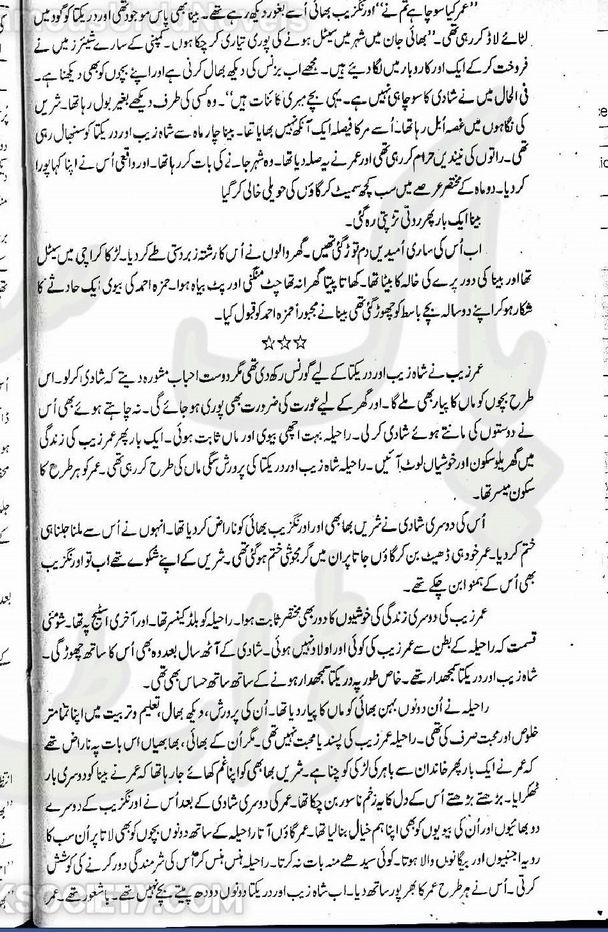 ”عمر کیا سوچا ہے تم نے“ اورنگزیب بھائی اُسے بغور دیکھ رہے تھے۔ بینا بھی پاس موجود تھی اور دریکتا کو گود میں
لٹائے لاڈ کر رہی تھی۔ ”بھائی جان میں شہر میں سیٹل ہونے کی پوری تیاری کر چکا ہوں۔ کمپنی کے سارے شیئرز میں نے
فروخت کر کے ایک اور کاروبار میں لگا دیے ہیں۔ مجھے اب بزنس کی دیکھ بھال کرنی ہے اور اپنے بچوں کو بھی دیکھنا ہے۔
فی الحال میں نے شادی کا سوچا ہی نہیں ہے۔ یہی بچے میری کائنات ہیں“۔ وہ کسی کی طرف دیکھے بغیر بول رہا تھا۔ شریں
کی نگاہوں میں غصہ اُبل رہا تھا۔ اُسے عمر کا فیصلہ ایک آنکھ نہیں بھایا تھا۔ بینا چار ماہ سے شاہ زیب اور دریکتا کو سنبھال رہی
تھی۔ راتوں کی نیندیں حرام کر رہی تھی اور عمر نے یہ صلہ دیا تھا۔ وہ شہر جانے کی بات کر رہا تھا۔ اور واقعی اُس نے اپنا کہا پورا
کر دیا۔ دو ماہ کے مختصر عرصے میں سب کچھ سمیٹ کر گاؤں کی حویلی خالی کر گیا
بینا ایک بار پھر روتی تڑپتی رہ گئی۔
اب اُس کی ساری اُمیدیں دم توڑ گئی تھیں۔ گھر والوں نے اُس کا رشتہ زبردستی طے کر دیا۔ لڑکا کراچی میں سیٹل
تھا اور بینا کی دور پرے کی خالہ کا بیٹا تھا۔ کھاتا پیتا گھرانہ تھا چٹ منگنی اور پٹ بیاہ ہوا۔ حمزہ احمد کی بیوی ایک حادثے کا
شکار ہو کر اپنے دو سالہ بچے باسط کو چھوڑ گئی تھی بینا نے مجبوراً حمزہ احمد کو قبول کیا۔
☆☆☆
عمر زیب نے شاہ زیب اور دریکتا کے لیے گورنس رکھ دی تھی مگر دوست احباب مشورہ دیتے کہ شادی کر لو۔ اس
طرح بچوں کو ماں کا پیار بھی ملے گا۔ اور گھر کے لیے عورت کی ضرورت بھی پوری ہو جائے گی۔ نہ چاہتے ہوئے بھی اُس
نے دوستوں کی مانتے ہوئے شادی کر لی۔ راحیلہ بہت اچھی بیوی اور ماں ثابت ہوئی۔ ایک بار پھر عمر زیب کی زندگی
میں گھریلو سکون اور خوشیاں لوٹ آئیں۔ راحیلہ شاہ زیب اور دریکتا کی پرورش سگی ماں کی طرح کر رہی تھی۔ عمر کو ہر طرح کا
سکون میسر تھا۔
اُس کی دوسری شادی نے شریں بھابھی اور اورنگزیب بھائی کو ناراض کر دیا تھا۔ انہوں نے اُس سے ملنا جلنا ہی
ختم کر دیا۔ عمر خود ہی ڈھیٹ بن کر گاؤں جاتا پر ان میں گرمجوشی ختم ہو گئی تھی۔ شریں کے اپنے شکوے تھے اب تو اورنگزیب
بھی اُس کے ہمنوا بن چکے تھے۔
عمر زیب کی دوسری زندگی کی خوشیوں کا دور بھی مختصر ثابت ہوا۔ راحیلہ کو بلڈ کینسر تھا۔ اور آخری اسٹیج پہ تھا۔ شومئی
قسمت کہ راحیلہ کے بطن سے عمر زیب کی کوئی اور اولاد نہیں ہوئی۔ شادی کے آٹھ سال بعد وہ بھی اُس کا ساتھ چھوڑ گئی۔
شاہ زیب اور دریکتا سمجھدار تھے۔ خاص طور پہ دریکتا سمجھدار ہونے کے ساتھ ساتھ حساس بھی تھی۔
راحیلہ نے اُن دونوں بہن بھائی کو ماں کا پیار دیا تھا۔ اُن کی پرورش، دیکھ بھال، تعلیم و تربیت میں اپنا تمام تر
خلوص اور محبت صرف کی تھی۔ راحیلہ عمر زیب کی پسند یا محبت نہیں تھی۔ مگر اُن کے بھائی، بھابھیاں اس بات پہ ناراض تھے
کہ عمر نے ایک بار پھر خاندان سے باہر کی لڑکی کو چنا ہے۔ شریں بھابھی کو اپنا غم کھائے جا رہا تھا کہ عمر نے بینا کو دوسری بار
ٹھکرایا۔ بڑھتے بڑھتے اُس کے دل کا یہ زخم ناسور بن چکا تھا۔ عمر کی دوسری شادی کے بعد اُس نے اورنگزیب کے دوسرے
دو بھائیوں اور اُن کی بیویوں کو بھی اپنا ہم خیال بنا لیا تھا۔ عمر گاؤں آتا راحیلہ کے ساتھ دونوں بچوں کو بھی لاتا پر اُن سب کا
رویہ اجنبیوں اور بیگانوں والا ہوتا۔ کوئی سیدھے منہ بات نہ کرتا۔ راحیلہ ہنس ہنس کر اُس کی شرمندگی دور کرنے کی کوشش
کرتی۔ اُس نے ہر طرح عمر کا بھرپور ساتھ دیا۔ اب شاہ زیب اور دریکتا دونوں دودھ پیتے بچے نہیں تھے۔ باشعور تھے۔ عمر